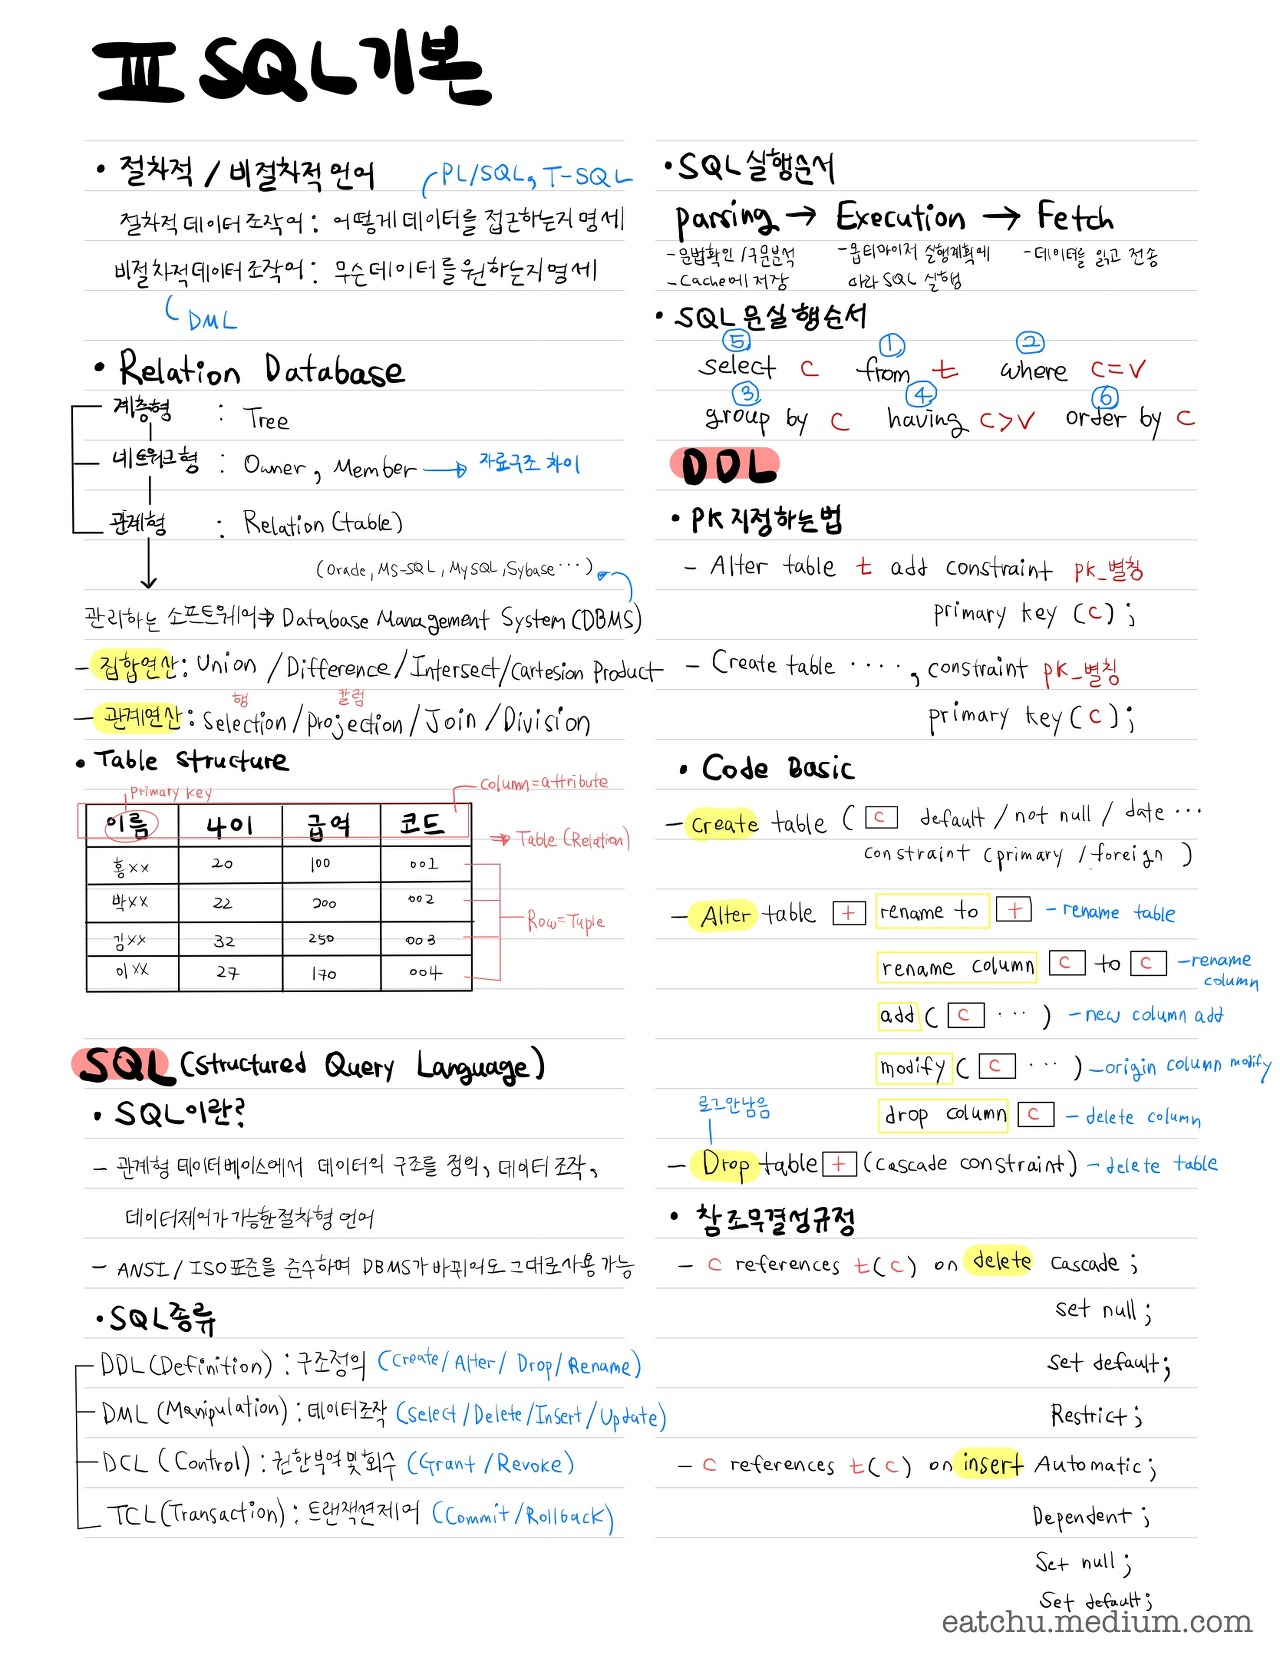 III SQL 기본
• 절차적 / 비절차적 언어
PL/SQL, T-SQL
절차적 데이터 조작어 : 어떻게 데이터를 접근하는지 명세
비절차적 데이터 조작어 : 무슨 데이터를 원하는지 명세
DML
• Relation Database
계층형 : Tree
네트워크형 : Owner, Member → 자료구조 차이
관계형 : Relation (table)
(Oracle, MS-SQL, MySQL, Sybase ···)
관리하는 소프트웨어 ⇒ Database Management System (DBMS)
- 집합연산 : Union / Difference / Intersect / Cartesion Product
행 칼럼
- 관계연산 : Selection / projection / Join / Division
• Table Structure
Primary key
column = attribute
이름 나이 급여 코드
→ Table (Relation)
홍×× 20 100 001
박×× 22 200 002
Row = Tuple
김×× 32 250 003
이×× 27 170 004
SQL (Structured Query Language)
• SQL이란?
- 관계형 데이터베이스에서 데이터의 구조를 정의, 데이터 조작,
데이터제어가 가능한 절차형 언어
- ANSI / ISO 표준을 준수하며 DBMS가 바뀌어도 그대로 사용 가능
• SQL 종류
DDL (Definition) : 구조정의 (Create / Alter / Drop / Rename)
DML (Manipulation) : 데이터조작 (Select / Delete / Insert / Update)
DCL (Control) : 권한부여 및 회수 (Grant / Revoke)
TCL (Transaction) : 트랜잭션제어 (Commit / Rollback)
• SQL 실행순서
parsing → Execution → Fetch
- 문법확인 / 구문분석
- Cache에 저장
- 옵티마이저 실행계획에
따라 SQL 실행
- 데이터를 읽고 전송
• SQL 문 실행순서
⑤ ① ②
select c from t where c=v
③ ④ ⑥
group by c having c>v order by c
DDL
• PK 지정하는 법
- Alter table t add constraint pk_별칭
primary key (c);
- Create table ····, constraint pk_별칭
primary key (c);
• Code Basic
- Create table ( c default / not null / date ···
constraint (primary / foreign )
- Alter table t rename to t - rename table
rename column c to c - rename
column
add ( c ··· ) - new column add
modify ( c ··· ) - origin column modify
drop column c - delete column
로그안남음
- Drop table t (cascade constraint) - delete table
• 참조무결성규정
- c references t(c) on delete Cascade ;
set null ;
set default ;
Restrict ;
- c references t(c) on insert Automatic ;
Dependent ;
Set null ;
Set default ;
eatchu.medium.com